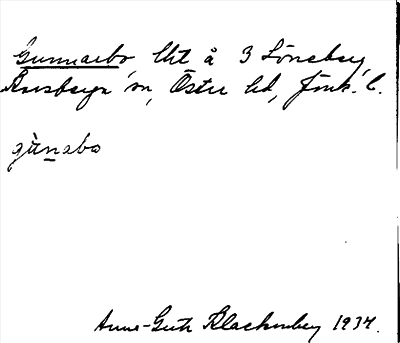 Gunnarbo lht å 3 Löneberg,
Älvsborgs sn, Östra hd, Jönk. l.
gùnabo
Anna-Greta Blackenberg 1934.